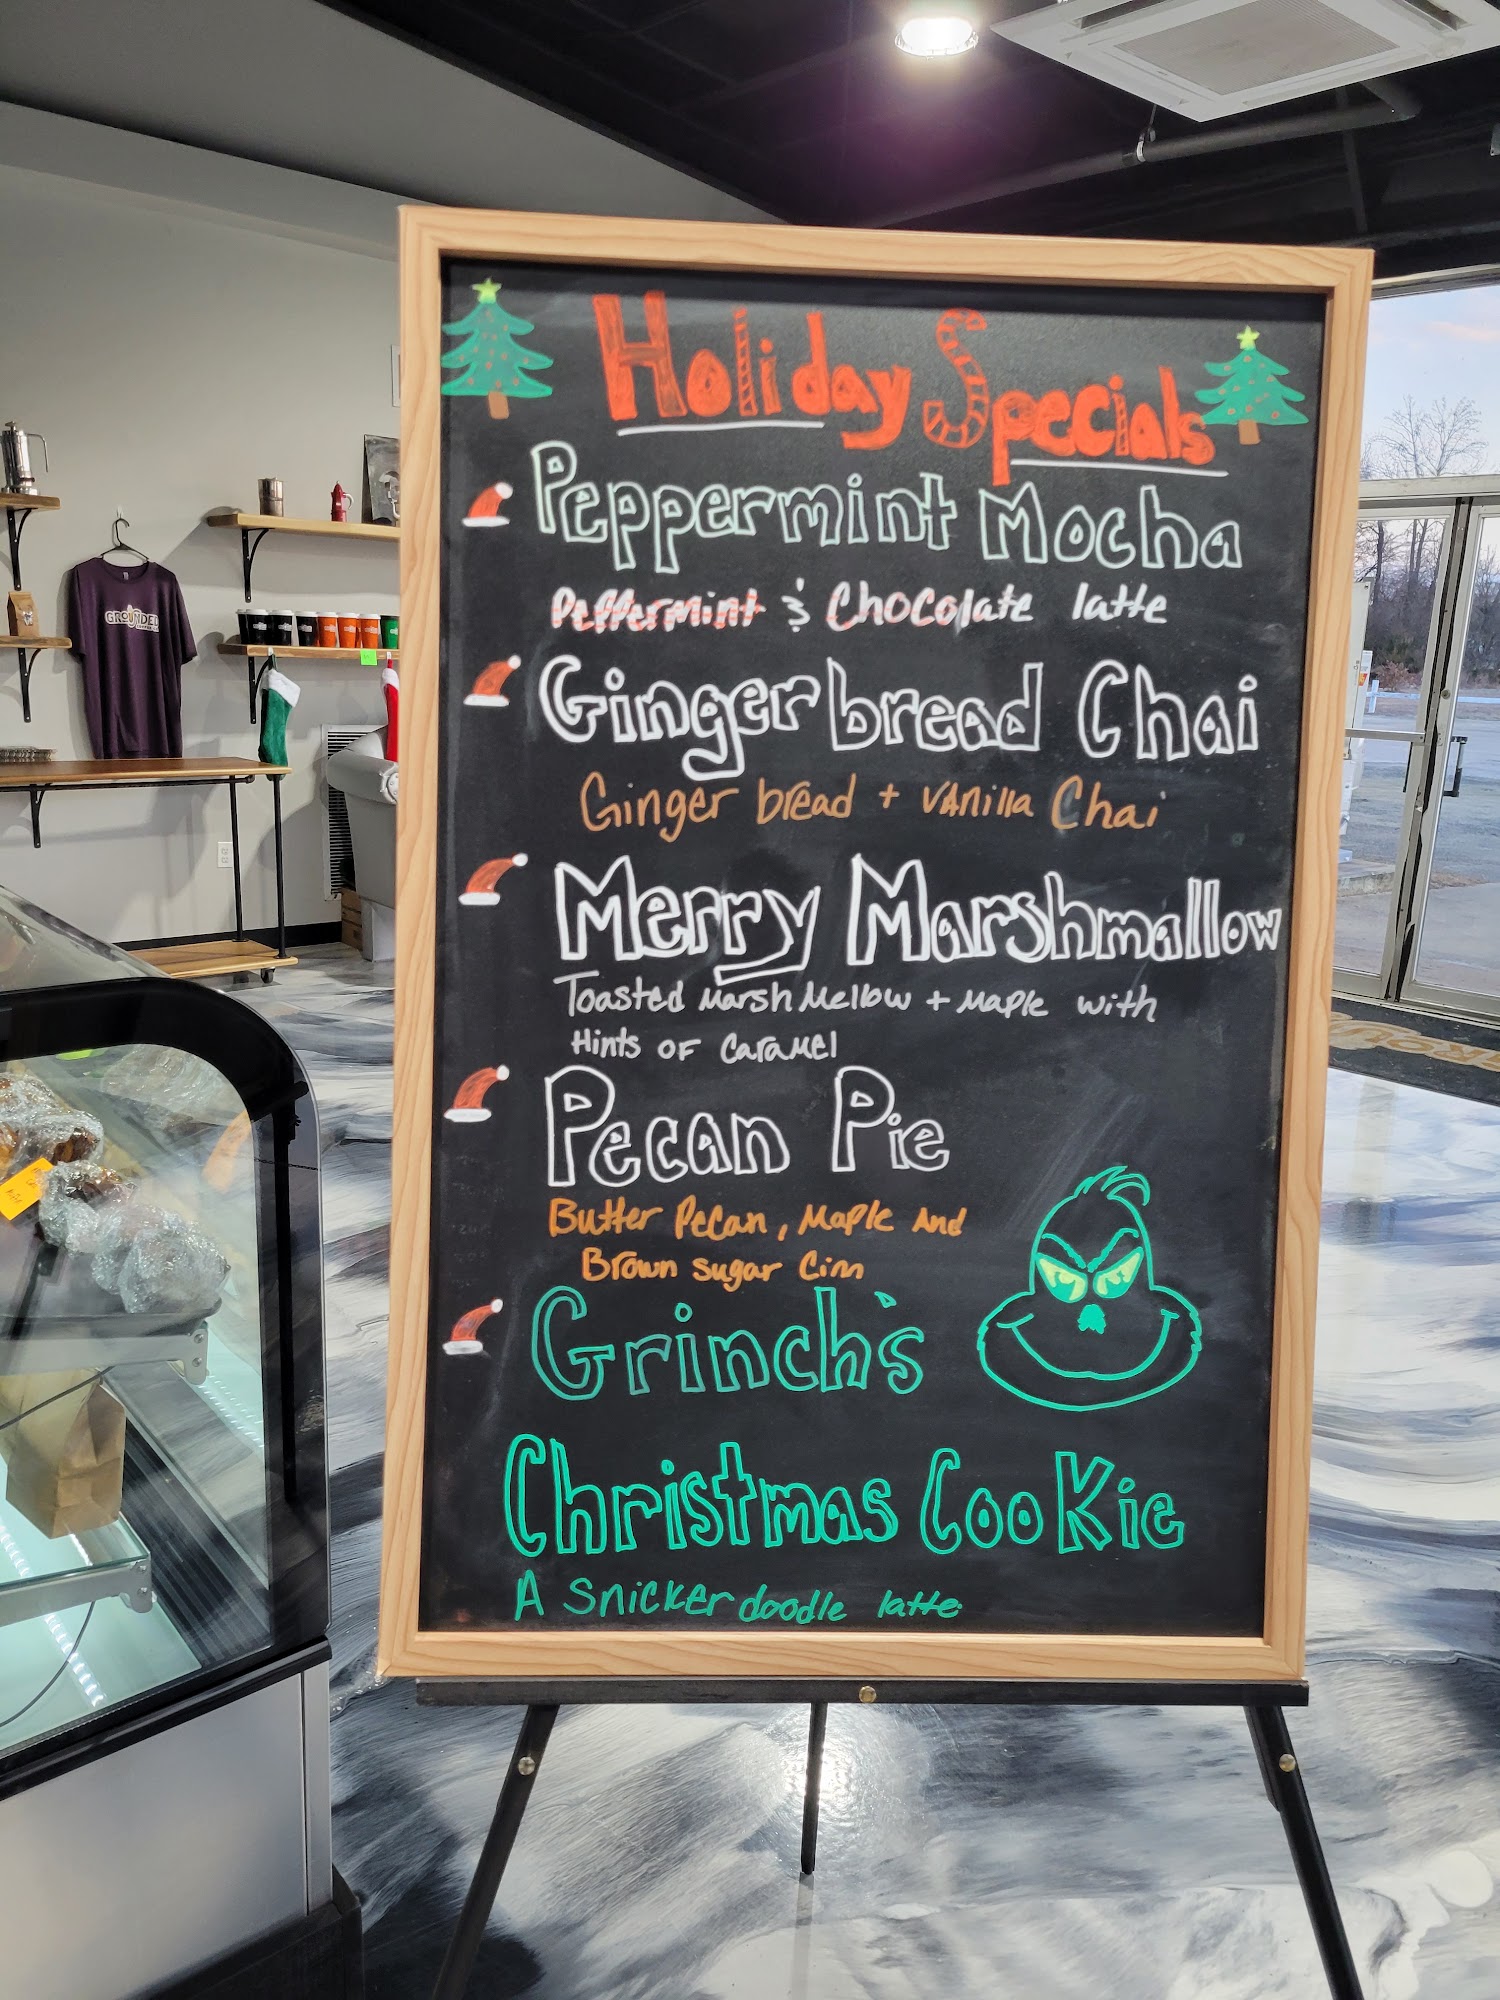 Holiday Specials
Peppermint Mocha
Peppermint & Chocolate latte
Gingerbread Chai
Ginger bread + vanilla Chai
Merry Marshmallow
Toasted Marsh Mellow + Maple with
Hints of Caramel
Pecan Pie
Butter Pecan, Maple And
Brown sugar Cinn
Grinch's
Christmas Cookie
A Snickerdoodle latte
GROUNDED